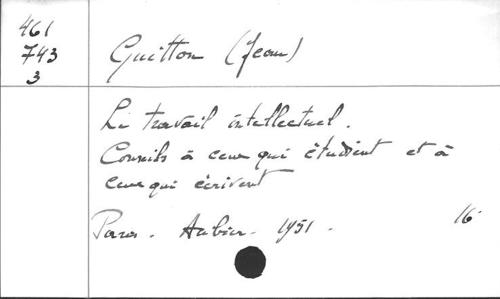 461
743
3
Guitton (Jean)
Le travail intellectuel.
Conseils à ceux qui étudient et à
ceux qui écrivent
Paris. Aubier. 1951. 16°